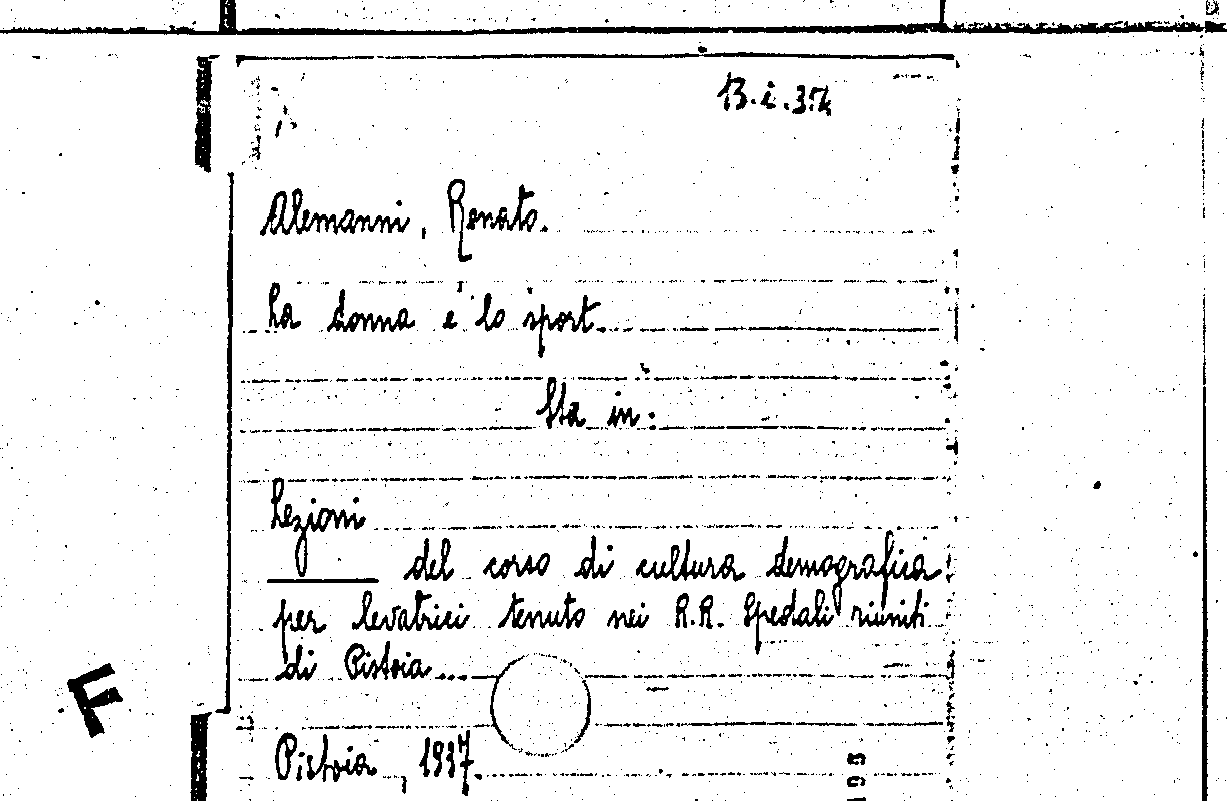 13.i.354
Alemanni, Renato.
La donna e lo sport.
Sta in:
Lezioni
del corso di cultura demografica
per levatrici tenuto nei R.R. Spedali riuniti
di Pistoia...
F
Pistoia, 1937.
195